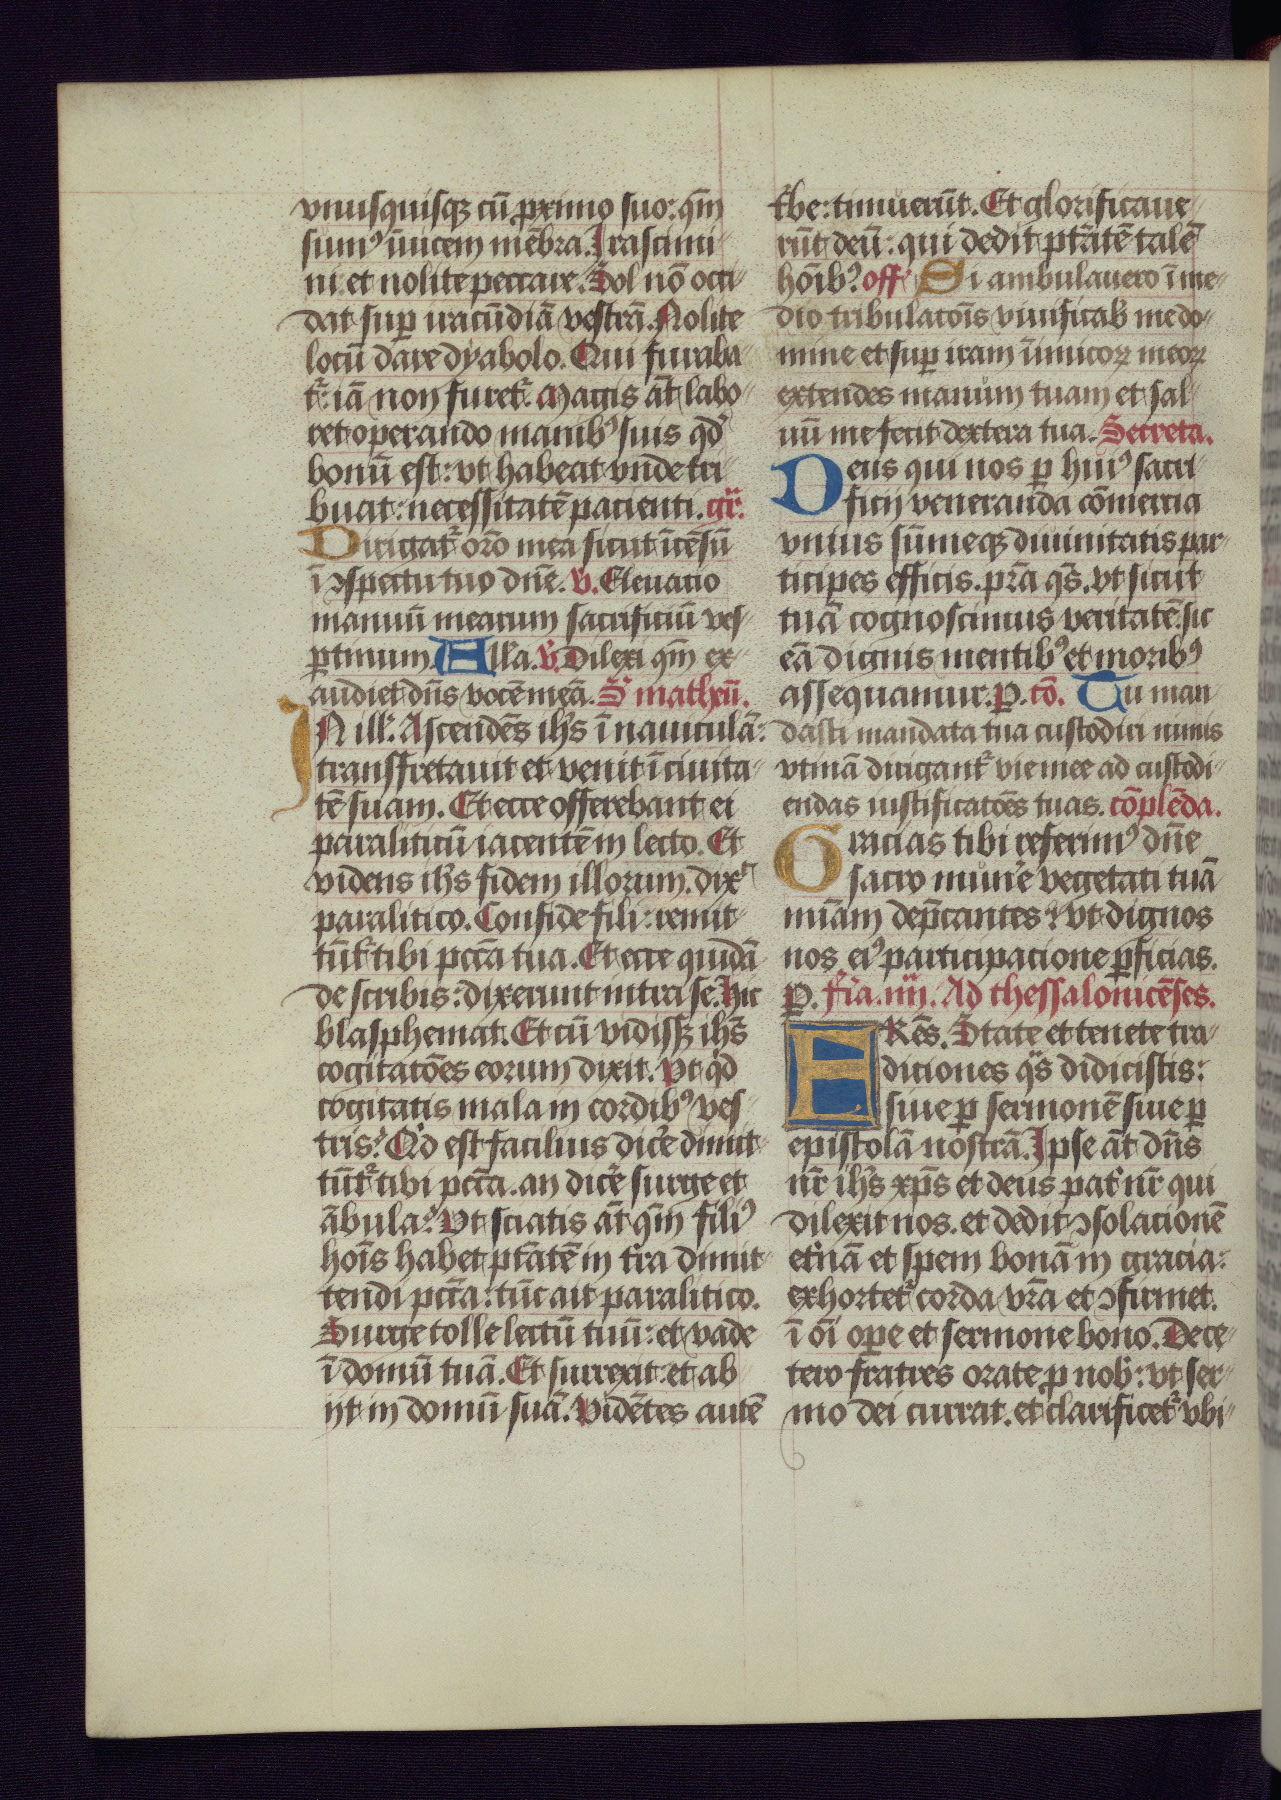 vnusquisqȝ cū ꝓximo suo: qm̄
sumꝰ īuicem mēbra. Irascimi-
ni et nolite peccare. Sol nō occi-
dat sup̱ iracūdiā vestrā. Nolite
locū dare dyabolo. Qui furaba-
t᷑: iā non furet᷑. Magis āt labo-
ret operando manibꝰ suis qd̓
bonū est: vt habeat vnde tri-
buat: necessitatē pacienti. gr̄.
Dirigat᷑ orō mea sicut īcēsū
ī ꝯspectu tuo dn̄e. v̄. Eleuatio
manuū mearum sacrificiū ves-
ꝑtinum. Alla. v̄. Dilexi qm̄ ex-
audiet dn̄s vocē meā. S matheū.
IN ill᷑. Ascendēs ih̄s ī nauiculā:
transfretauit et venit ī ciuita-
tē suam. Et ecce offerebant ei
paraliticū iacentē in lecto. Et
videns ih̄s fidem illorum. dixᷣ
paralitico. Confide fili: remit-
tūt᷑ tibi pctā tua. Et ecce quidā
de scribis: dixerunt intra se. Hic
blasphemat. Et cū vidissȝ ih̄s
cogitatōes eorum dixit. Vt qd̓
cogitatis mala in cordibꝰ ves-
tris? Qd̓ est facilius dice᷑ dimit-
tūt᷑ tibi pctā. an dice᷑ surge et
ābula? Vt sciatis āt qm̄ filiꝰ
hoīs habet ptātē in tra᷑ dimit-
tendi pctā: tūc ait paralitico.
Surge tolle lectū tuū: et vade
ī domū tuā. Et surrexit: et ab-
ijt in domū suā. Vidētes autē
t᷑be: timuerūt. Et glorificaue-
rūt deū: qui dedit ptātē talē
hoībꝰ. off᷑ Si ambulauero ī me-
dio tribulatōis viuificab᷑ me do-
mine et sup̱ iram īimicoꝝ meoꝝ
extendes manum tuam et sal-
uū me fecit dextera tua. Secreta.
Deus qui nos ꝑ huiꝰ sacri-
ficij veneranda cōmercia
vnius sūmeqȝ diuinitatis par-
ticipes efficis. pr̄a qs̄. vt sicut
tuā cognoscimus veritatē: sic
eā dignis mentibꝰ et moribꝰ
assequamur. P. cō. Tu man-
dasti mandata tua custodiri nimis
vtinā dirigant᷑ vie mee ad custodi-
endas iustificatōes tuas. cōplēda.
Gracias tibi referimꝰ dn̄e
sacro mune᷑ vegetati tuā
miāam dep̄cantes: vt dignos
nos eiꝰ participacione ꝑficias.
P. fr̄ia. iiij. Ad thessalonicēses.
FRēs. State et tenete tra-
diciones qs̄ didicistis:
siue ꝑ sermonē siue ꝑ
epistolā nostrā. Ipse āt dn̄s
nr̄ ih̄s xp̄s et deus pat᷑ nr̄ qui
dilexit nos. et dedit ꝯsolacionē
et᷑nā et spem bonā in gracia:
exhortet᷑ corda vr̄a et ꝯfirmet.
ī oī ope᷑ et sermone bono. De ce-
tero fratres orate ꝓ nob᷑: vt ser-
mo dei currat. et clarificet᷑ vbi-